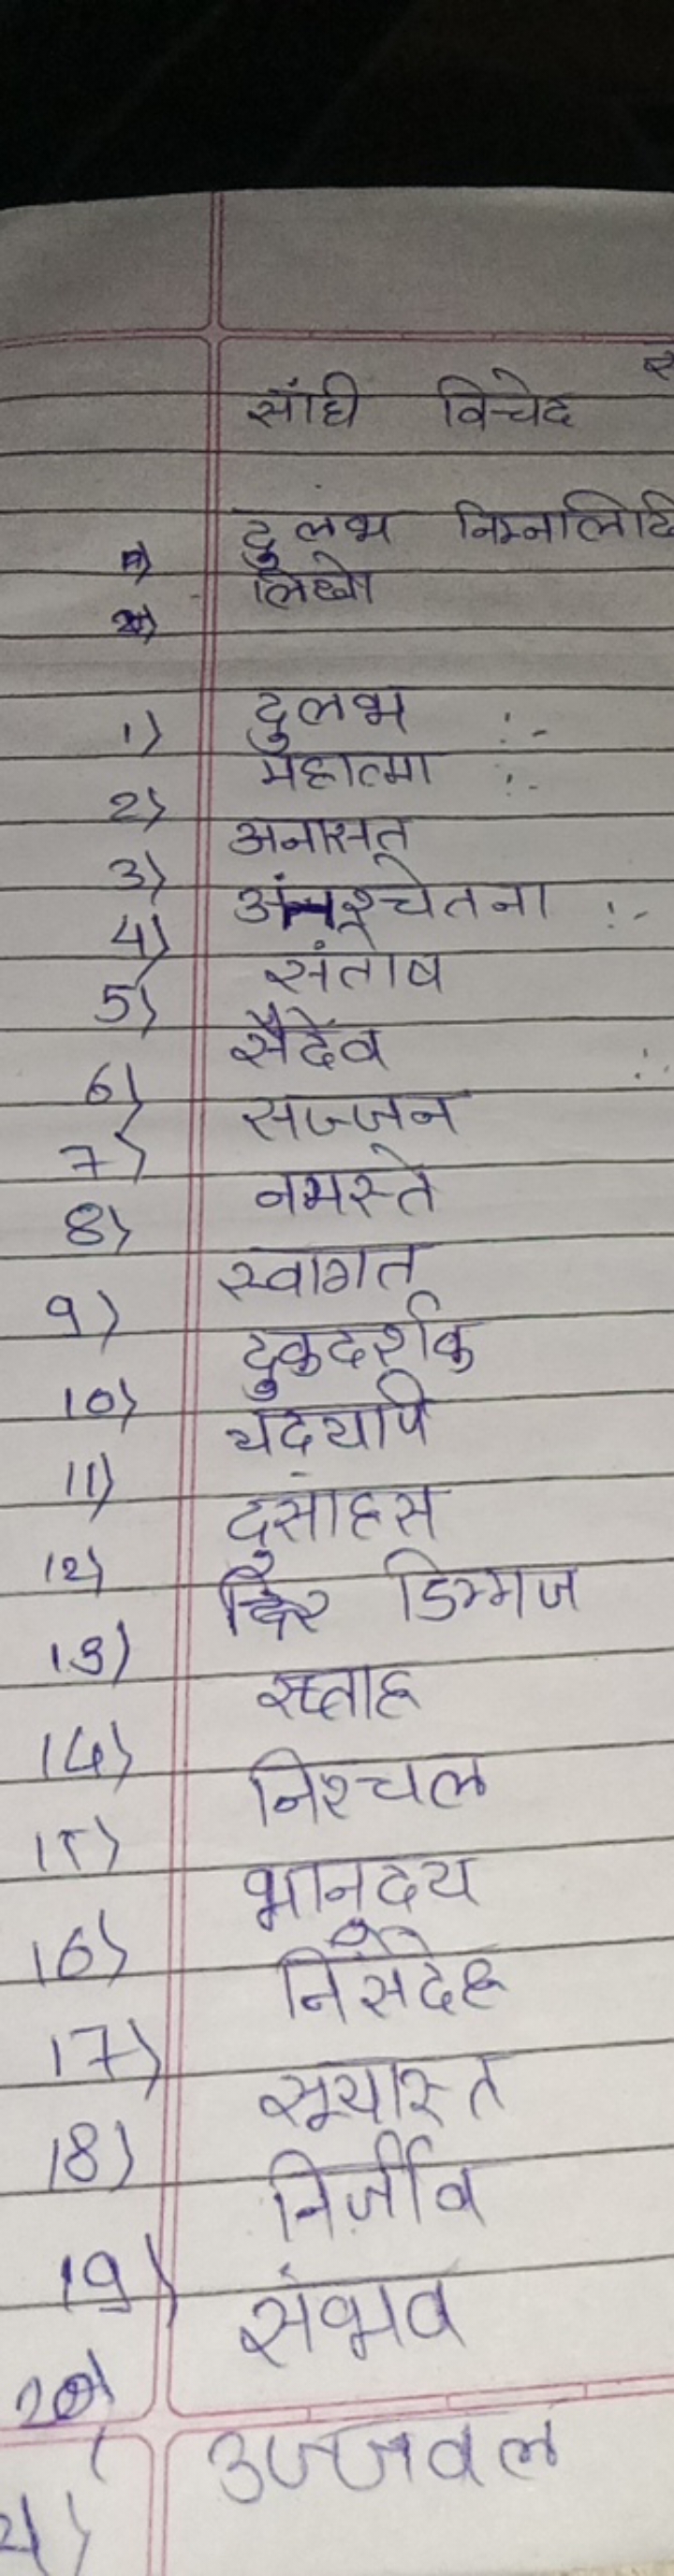 सांधी विचेद
दुलभ निम्नलिखि
लिखो
1) दुलभ :-
2) महात्मा :-
3) अनासत्
4) अंनश्चेतना :-
5) संतोष
6) सैदेव
7) सज्जन
8) नमस्ते
9) स्वागत
10) दुकदर्शक
11) यदयापि
12) दुसांहस
13) डिग्गज
14) स्प्ताह
15) निश्चल
16) भानुदय
17) निसंदेह
18) सूयास्त
19) निर्जीव
20) संभव
उज्जवल